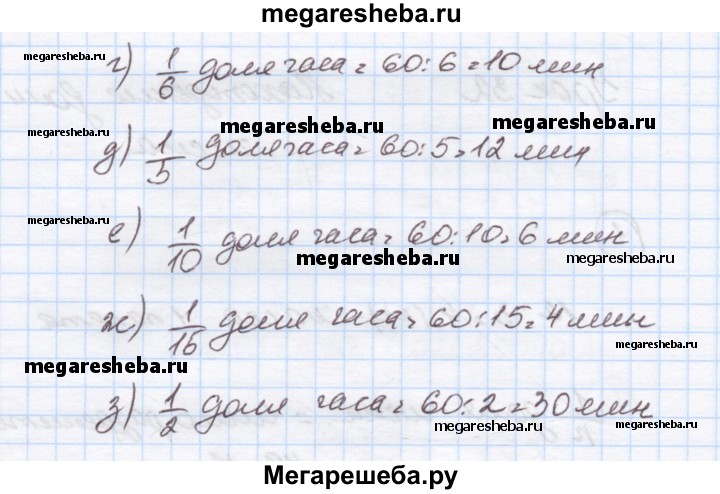 megaresheba.ru
megaresheba.ru
г) 1/6 доля часа = 60:6=10 мин
megaresheba.ru
megaresheba.ru megaresheba.ru
megaresheba.ru
д) 1/5 доля часа = 60:5=12 мин
megaresheba.ru
е) 1/10 доля часа = 60:10=6 мин
megaresheba.ru
megaresheba.ru
ж) 1/15 доля часа = 60:15=4 мин
megaresheba.ru
megaresheba.ru
з) 1/2 доля часа = 60:2=30 мин
megaresheba.ru
megaresheba.ru
Мегарешеба.ру